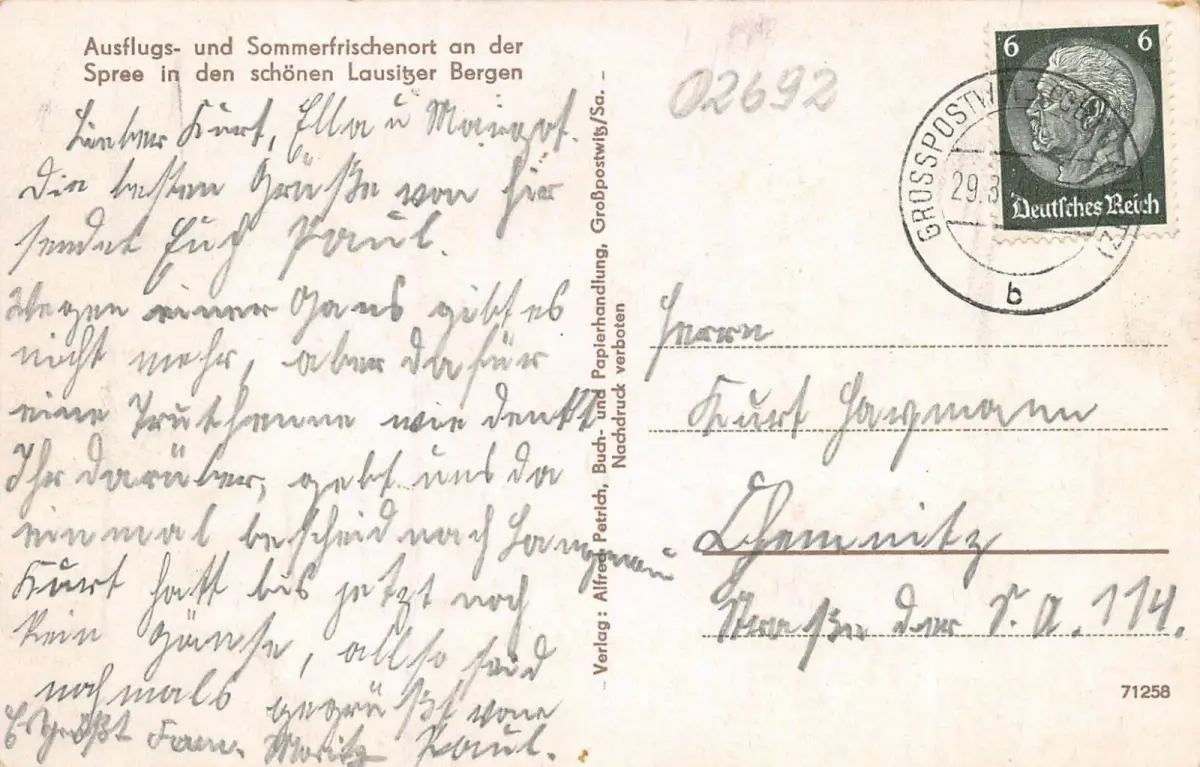 Ausflugs- und Sommerfrischenort an der
Spree in den schönen Lausitzer Bergen
Lieber Kurt, Ella u Margot.
Die besten Grüße von hir
sendet Euch Paul.
Wegen einer Gans gibt es
nicht mehr, aber dafür
eine Truthenne wie denkt
Ihr darüber, gebt uns da
einmal bescheid nach
Kurt hatt bis jetzt noch
kein Gänse, allso seid
nochmals gegrüßt vone
Es grüßt Fam. Moritz Paul.
Verlag: Alfred Petrich, Buch- und Papierhandlung, Großpostwitz/Sa.
Nachdruck verboten
02692
6 6
Deutsches Reich
GROSSPOSTWITZ
29.3
b
Herrn
Kurt Hagmann
Chemnitz
Straße der S. A. 114.
71258